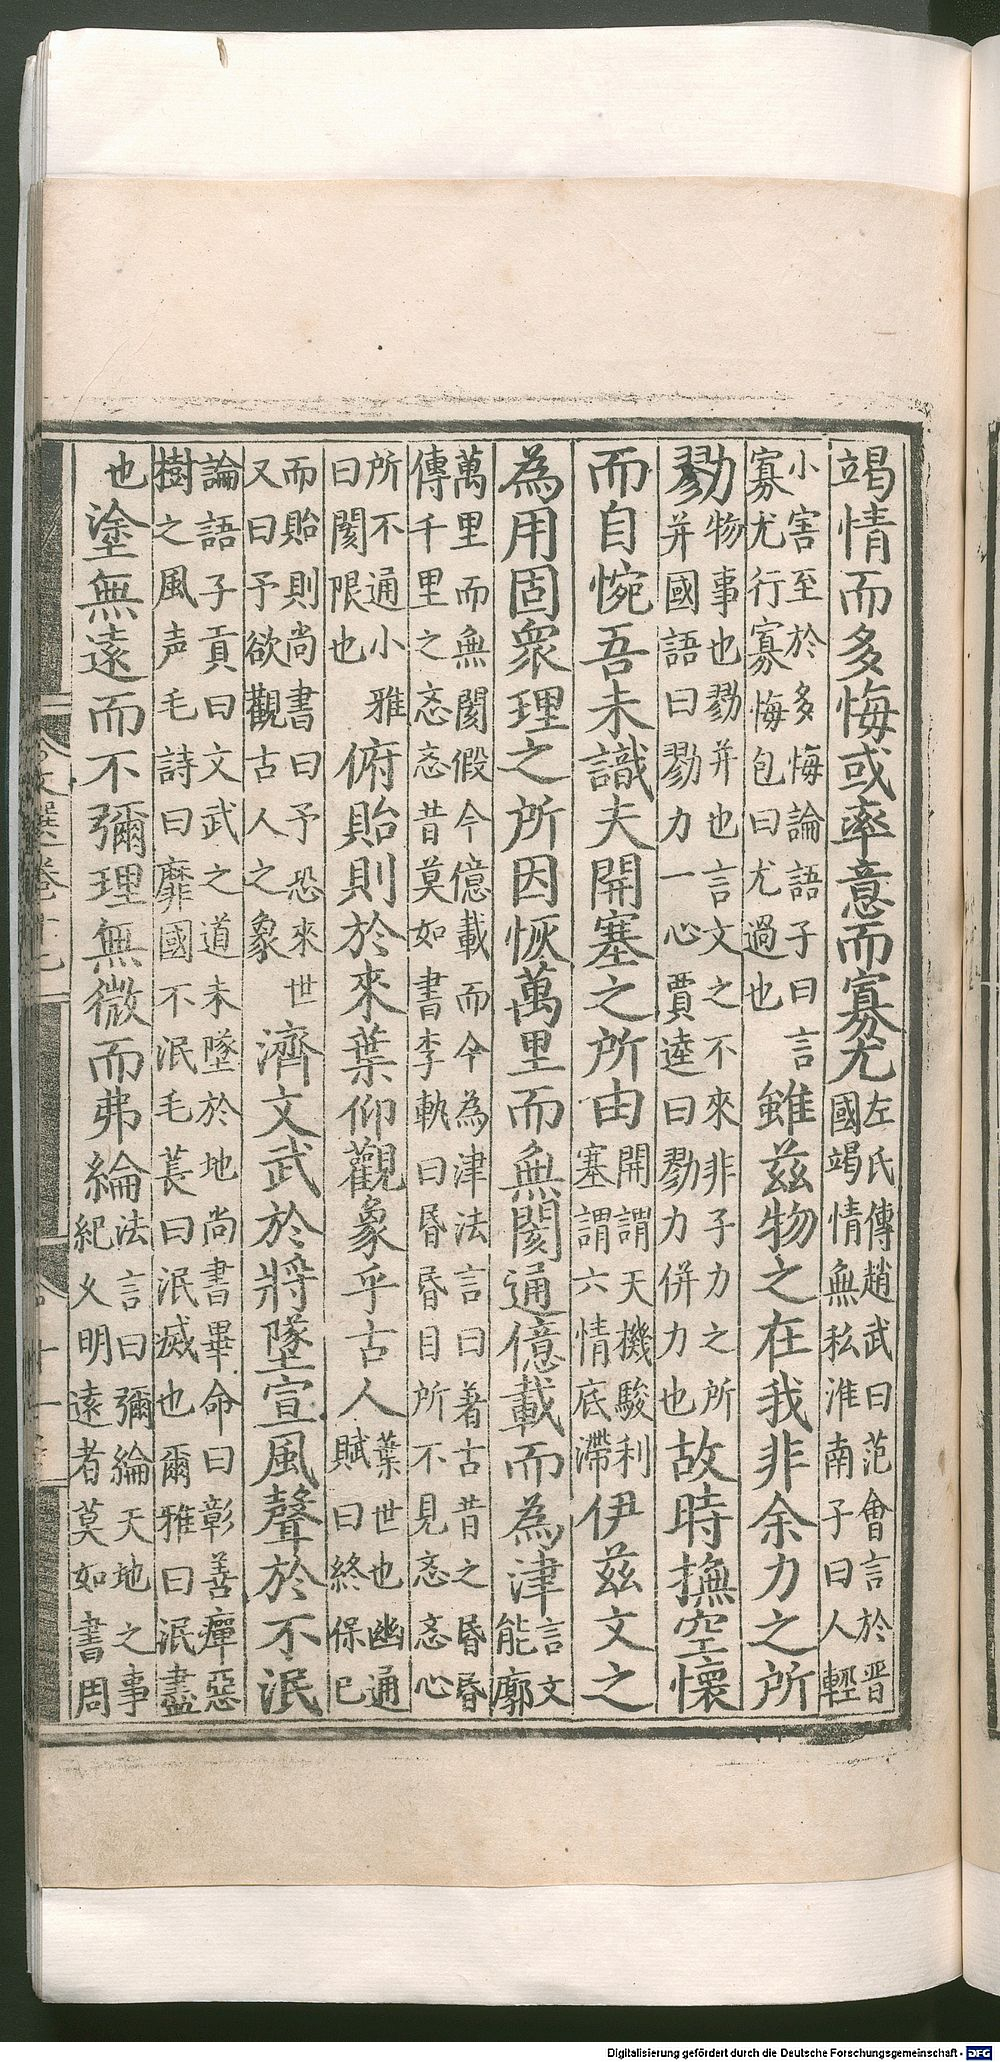 竭情而多悔或率意而寡尤左氏傳趙武曰范會言於晉國竭情無私淮南子曰人輕
小害至於多悔論語子曰言寡尤行寡悔包曰尤過也雖茲物之在我非余力之所
勠物事也勠并也言文之不來非子力之所并國語曰勠力一心賈逵曰勠力併力也故時撫空懷
而自惋吾未識夫開塞之所由開謂天機駿利塞謂六情底滯伊茲文之
為用固眾理之所因恢萬里而無閡通億載而為津言文能廓
萬里而無閡假令億載而今為津法言曰著古昔之昬昬傳千里之忞忞昔莫如書李軌曰昬昬目所不見忞忞心
所不通小雅曰閡限也俯貽則於來葉仰觀象乎古人葉世也幽通賦曰終保已
而貽則尚書曰予恐來世又曰予欲觀古人之象濟文武於將墜宣風聲於不泯
論語子貢曰文武之道未墜於地尚書畢命曰彰善癉惡樹之風声毛詩曰靡國不泯毛萇曰泯滅也爾雅曰泯盡
也塗無遠而不彌理無微而弗綸法言曰彌綸天地之事紀久明遠者莫如書周
文選卷十七
十一
Digitalisierung gefördert durch die Deutsche Forschungsgemeinschaft - DFG